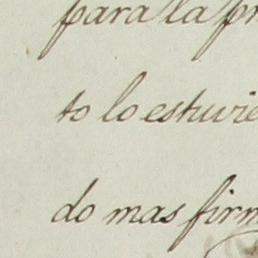 para la pr
to lo estuvie
do mas firm